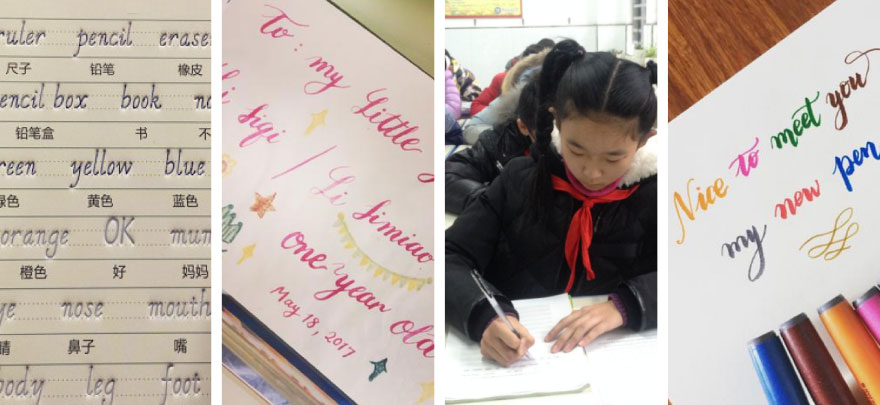 ruler pencil erase
尺子 铅笔 橡皮
encil box book
铅笔盒 书 不
reen yellow blue
绿色 黄色 蓝色
orange OK mum
橙色 好 妈妈
ye nose mouth
睛 鼻子 嘴
body leg foot
To: my Little
Siqi / Li Simiao
One year old
May 18, 2017
Nice to meet you
my new pen